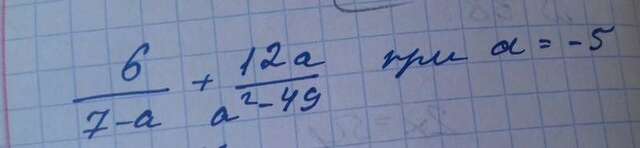 6/(7-a) + 12a/(a²-49) при a = -5